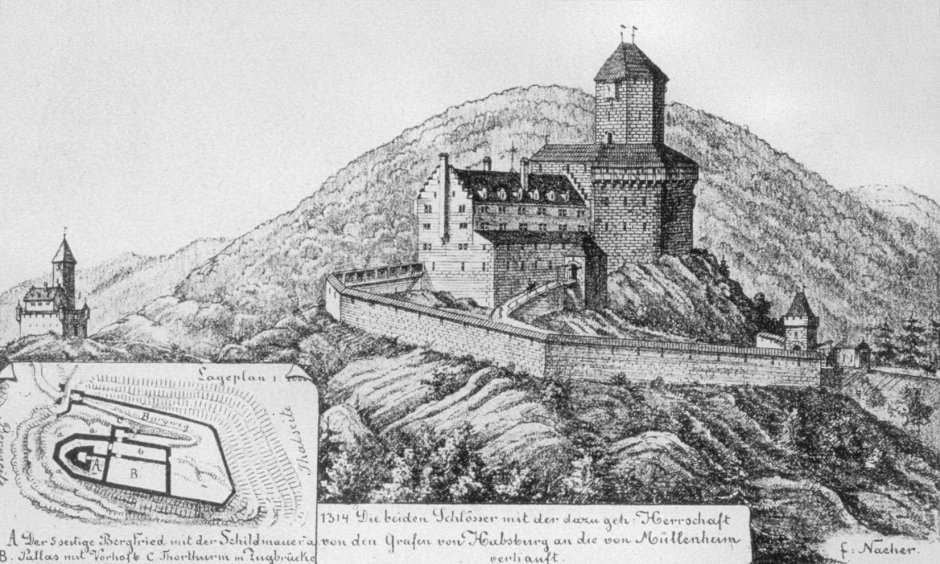 Lageplan 1
Burgweg
A
B
b
Thalseite
A Der 5 seitige Bergfried mit der Schildmauer. a.
B. Pallas mit Vorhof b C Thorthurm m Zugbrücke
1314 Die beiden Schlösser mit der dazu geh. Herrschaft
von den Grafen von Habsburg an die von Müllenheim
verkauft.
f: Naeher.